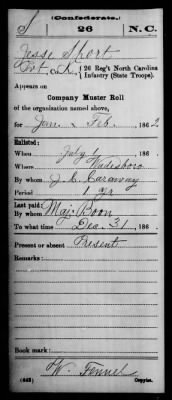 (Confederate.)
S 26 N.C.
Jesse Short
Pvt, Co. K, 26 Reg't North Carolina
Infantry (State Troops).
Appears on
Company Muster Roll
of the organization named above,
for Jan. & Feb., 1862
Enlisted:
When July 1, 186
Where Wadesboro
By whom J. C. Caraway
Period 1 yr
Last paid:
By whom Maj. Boon
To what time Dec. 31, 186
Present or absent Present
Remarks:
Book mark:
W. Fennel
(642) Copyist.